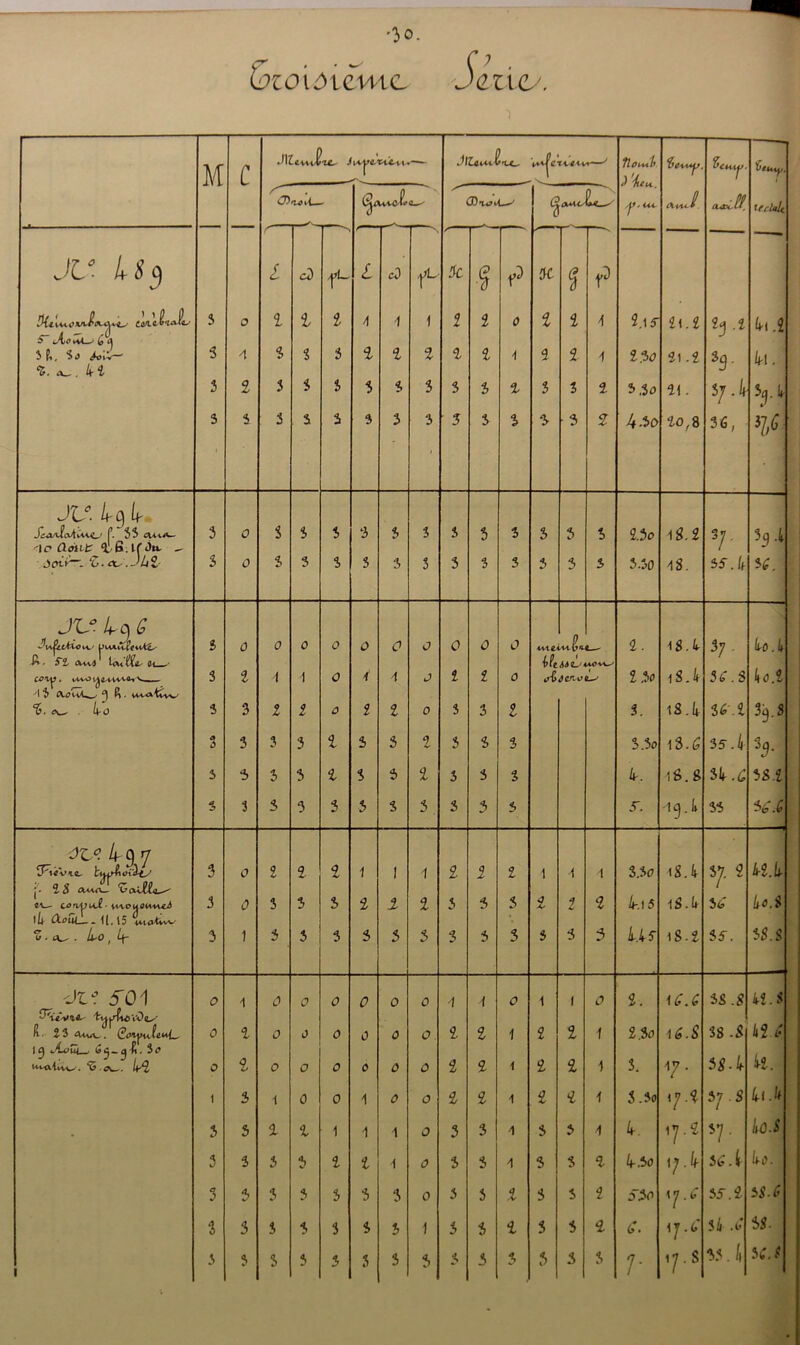 30.
Troisième Série.
M C Membre supérieur Membre inférieur Nomb. d'heu. p. m. Temp. amb. Temp. axill. Temp. rectale
Droit Gauche Droit Gauche
№ 489 
Hémorrhagie cérébrale
3 0 2 2 2 1 1 1 2 2 0 2 2 1 2,15 21.2 29.2 41.2
3 1 3 3 3 2 2 2 2 2 1 2 2 1 2.30 21.2 39. 41.
3 2 3 3 3 3 3 3 3 3 2 3 3 2 3.30 21. 37.4 39.4
3 3 3 3 3 3 3 3 3 3 3 3 3 2 4.30 20,8 36, 37,6
№ 494
Scarlatine f. 33 ans
10 Août
soir. T. a. 42
3 0 3 3 3 3 3 3 3 3 3 3 3 3 2.30 18.2 37. 39.4
3 0 3 3 3 3 3 3 3 3 3 3 3 3 3.30 18. 35.4 36.
№ 496
Infection purulente
h. 52 ans
13 Août 9 h. matin
T. a. 40
membre
3 0 0 0 0 0 0 0 0 0 0 2. 18.4 37. 40.4
3 2 1 1 0 1 1 0 2 2 0 2.30 18.4 36.8 40.2
3 3 2 2 0 2 2 0 3 3 2 3. 18.4 36.2 39.8
3 3 3 3 2 3 3 2 3 3 3 3.30 18.6 35.4 39.
3 3 3 3 2 3 3 2 3 3 3 4. 18.8 34.6 38.2
3 3 3 3 3 3 3 3 3 3 3 5. 19.4 33 36.6
№ 497
Fièvre typhoïde
f. 28 ans
14 Août 11.15 matin
T. a. 40,4
3 0 2 2 2 1 1 1 2 2 2 1 1 1 3,30 18.4 37.2 42.4
3 0 3 3 3 2 2 2 3 3 3 2 2 2 4.15 18.4 36 40.8
3 1 3 3 3 3 3 3 3 3 3 3 3 3 4.45 18.2 35. 38.8
№ 501
Fièvre typhoïde
h. 23 ans
19 Août
matin. T. a. 42
0 1 0 0 0 0 0 0 1 1 0 1 1 0 2. 16.6 38.8 42.8
0 2 0 0 0 0 0 0 2 2 1 2 2 1 2,30 16.8 38.8 42.6
0 2 0 0 0 0 0 0 2 2 1 2 2 1 3. 17. 38.4 42.
1 3 1 0 0 1 0 0 2 2 1 2 2 1 3.30 17.2 37.8 41.4
3 3 2 2 1 1 1 0 3 3 1 3 3 1 4. 17.2 37. 40.8
3 3 3 3 2 2 1 0 3 3 1 3 3 2 4.30 17.4 36.4 40.
3 3 3 3 3 3 3 0 3 3 2 3 3 2 5.30 17.6 35.2 38.6
3 3 3 3 3 3 3 1 3 3 2 3 3 2 6. 17.6 34.6 38.
3 3 3 3 3 3 3 3 3 3 3 3 3 3 7. 17.8 33.4 36.8